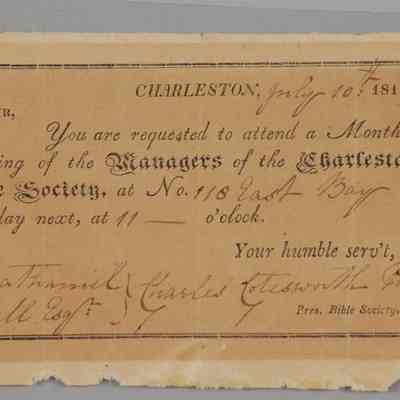 CHARLESTON, July 10th. 181
R,
You are requested to attend a Month
ing of the Managers of the Charlesto
e Society, at No. 118 East Bay
day next, at 11 — o'clock.
Your humble serv't,
athaniel } Charles Cotesworth
ll Esqr.
Pres. Bible Society.